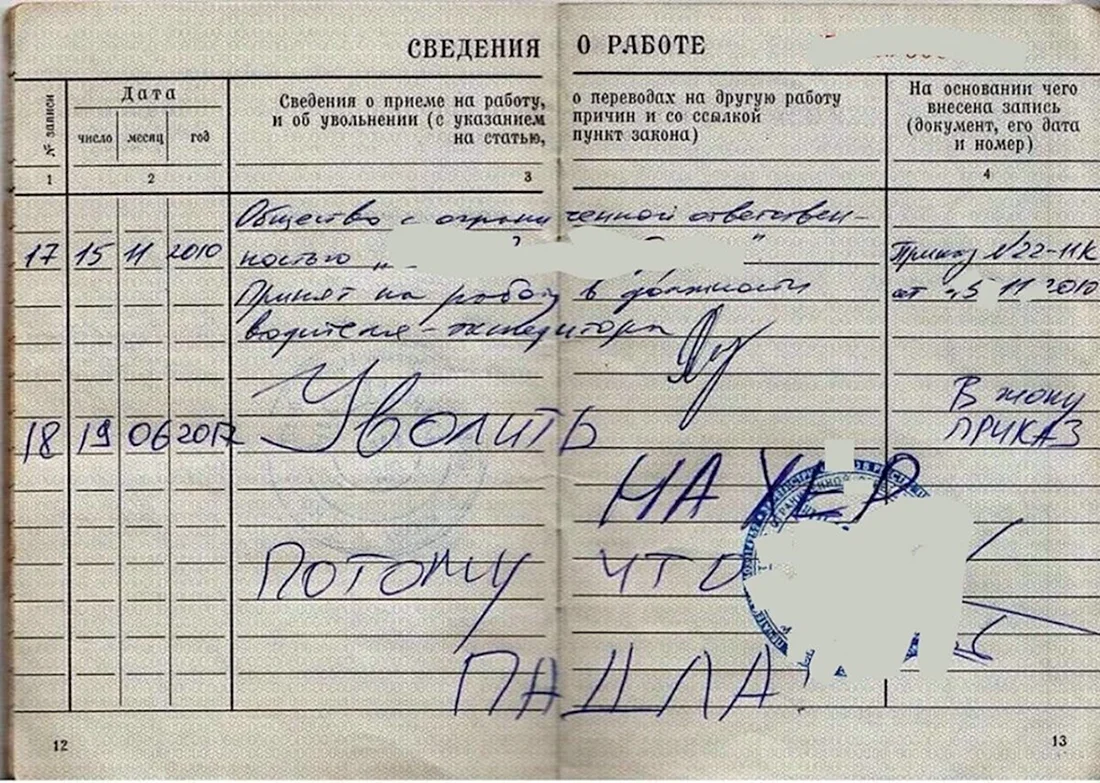 СВЕДЕНИЯ О РАБОТЕ
№ записи
Дата
число месяц год
Сведения о приеме на работу, о переводах на другую работу
и об увольнении (с указанием причин и со ссылкой
на статью, пункт закона)
На основании чего
внесена запись
(документ, его дата
и номер)
1 2 3 4
Общество с ограниченной ответствен-
17 15 11 2010 ностью „ " Приказ №22-11К
Принят на работу в должности от 15 11 2010
водителя-экспедитора
18 19 06 2017 Уволить В жопу
ПРИКАЗ
НА ХЕР
ПОТОМУ ЧТО
ПАДЛА
12 13